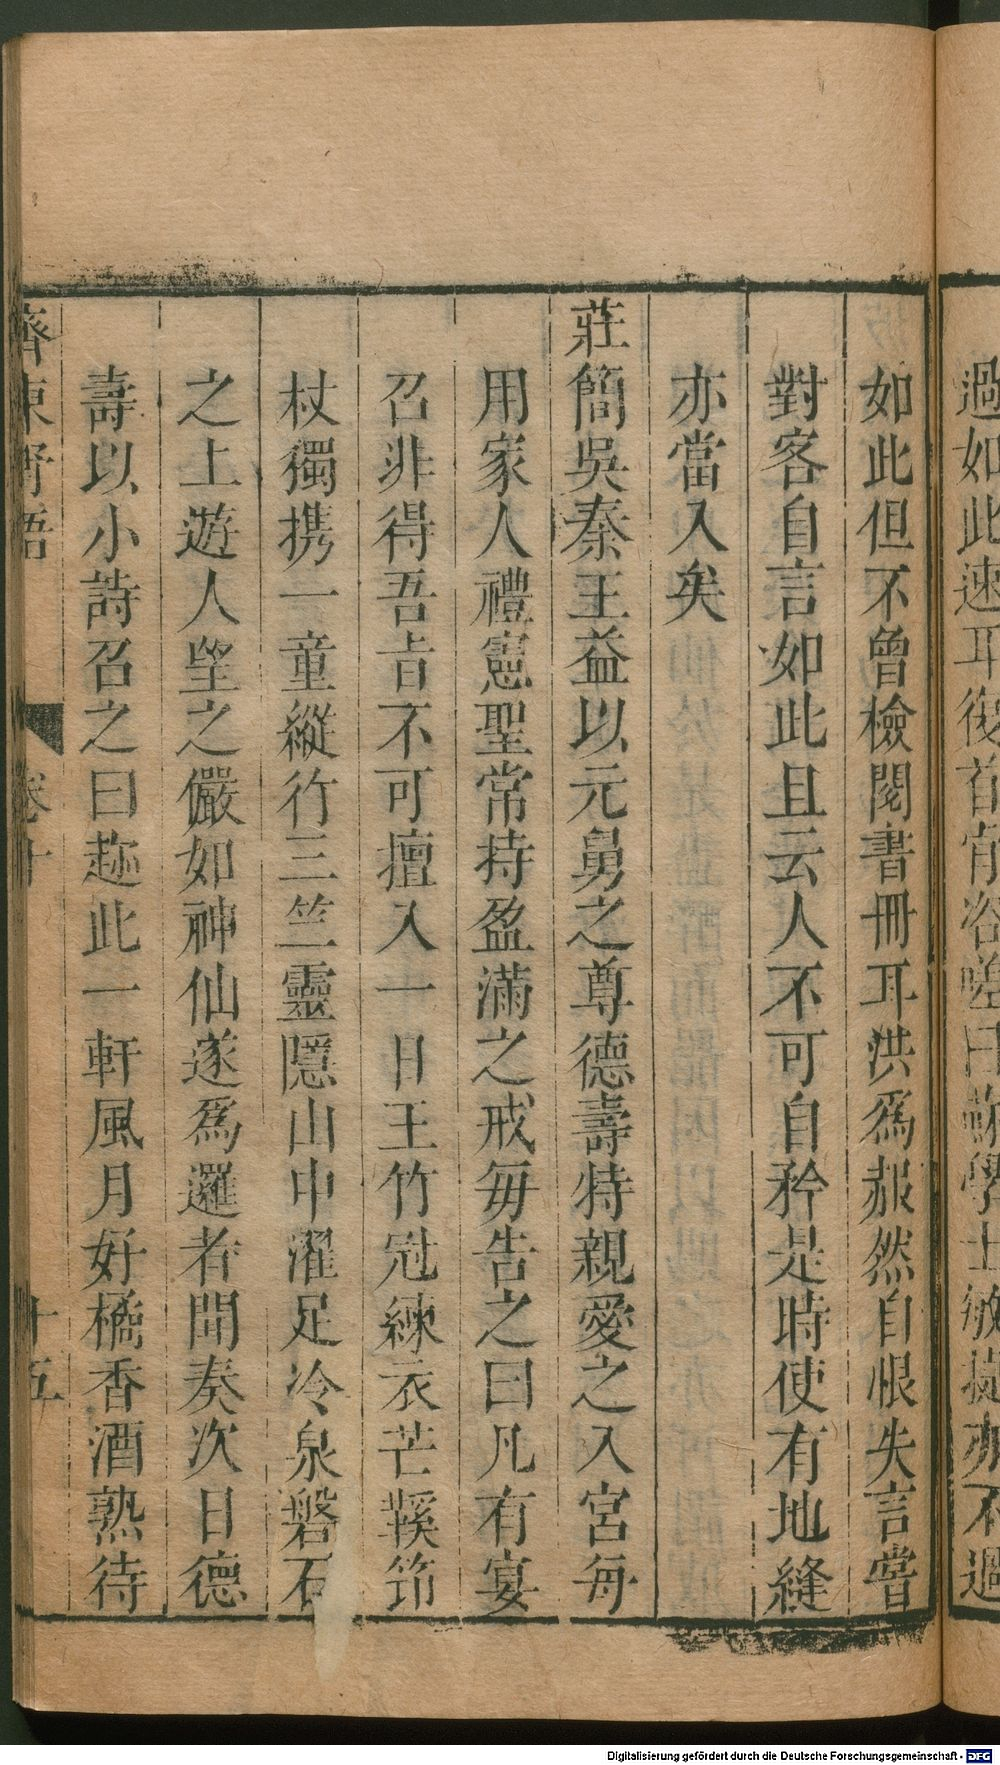 過如此速耳復首肯咨嗟曰蘇學士敏捷亦不過
如此但不曾檢閱書冊耳洪爲赧然自恨失言嘗
對客自言如此且云人不可自矜是時使有地縫
亦當入矣
莊簡吳秦王益以元舅之尊德壽特親愛之入宮每
用家人禮憲聖常持盈滿之戒每告之曰凡有宴
召非得吾㫖不可擅入一日王竹冠練衣芒鞵筇
杖獨携一童縱行三竺靈隱山中濯足冷泉磐石
之上遊人望之儼如神仙遂爲邏者聞奏次日德
壽以小詩召之曰趂此一軒風月好橘香酒熟待
齊東野語 卷十 十五
Digitalisierung gefördert durch die Deutsche Forschungsgemeinschaft - DFG